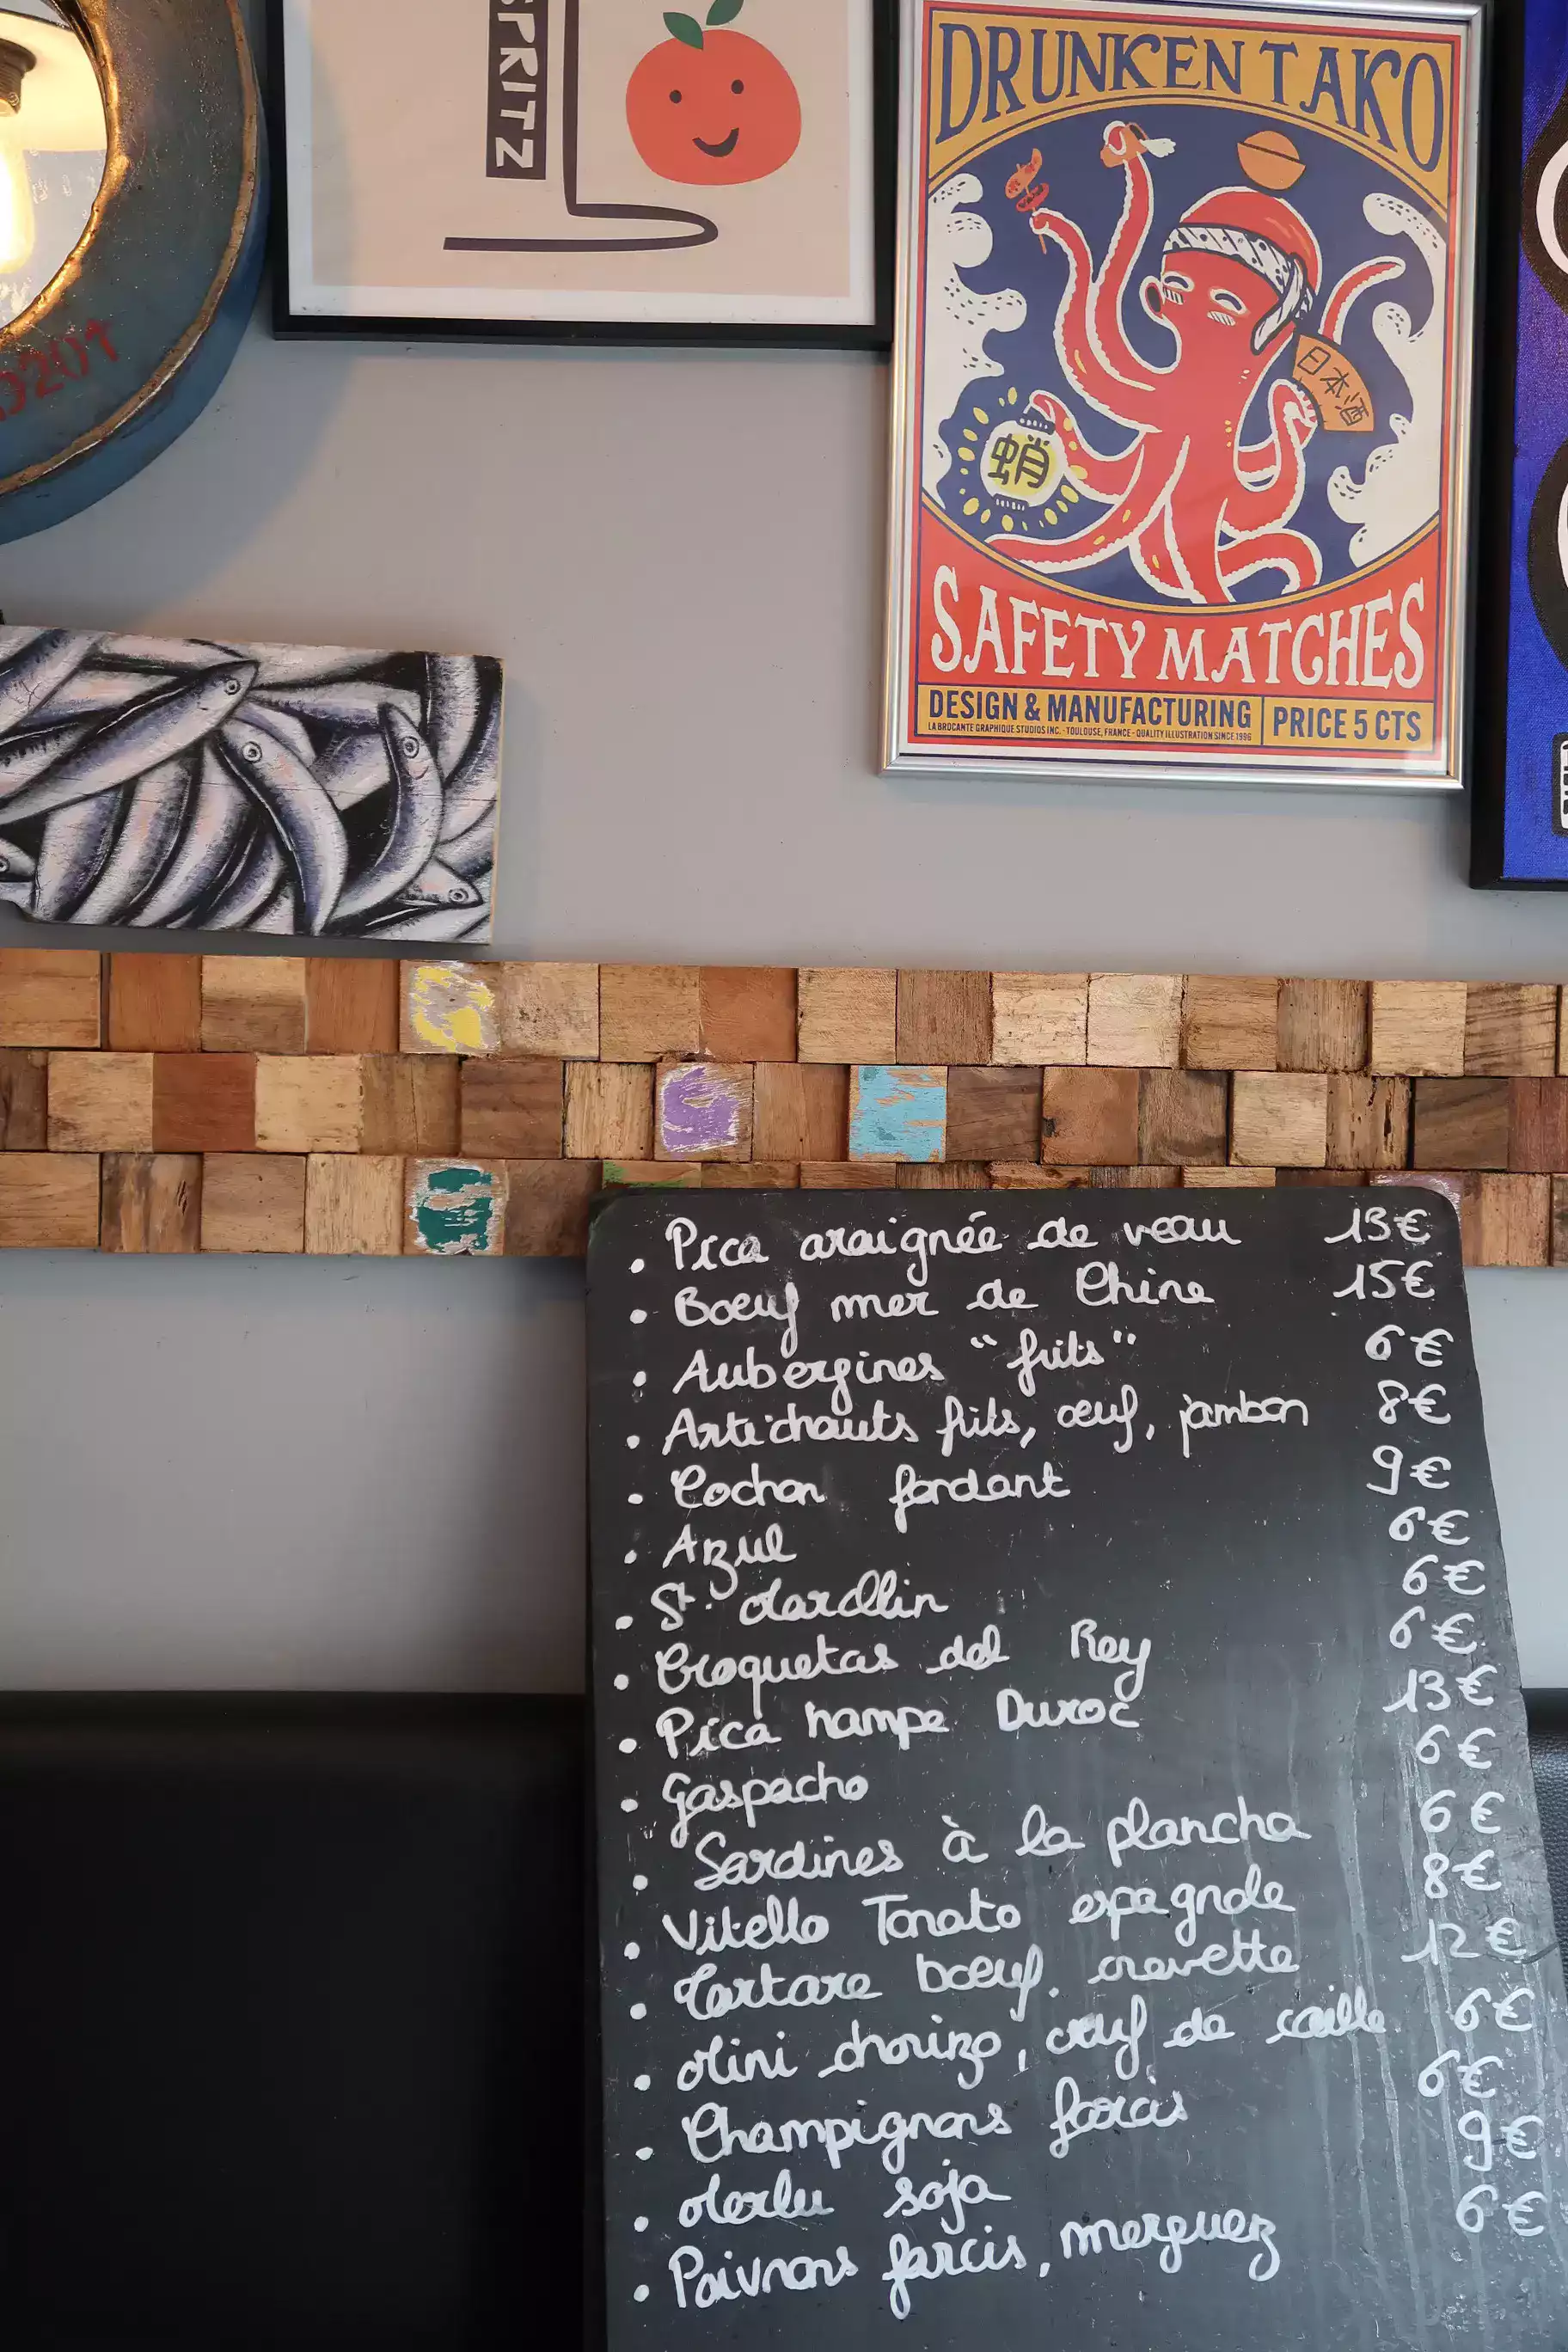 SPRITZ
DRUNKEN TAKO
日本酒
蛸
SAFETY MATCHES
DESIGN & MANUFACTURING
LA BROCANTE GRAPHIQUE STUDIOS INC. - TOULOUSE, FRANCE - QUALITY ILLUSTRATION SINCE 1996
PRICE 5 CTS
• Pica araignée de veau 13€
• Boeuf mer de Chine 15€
• Aubergines "frits" 6€
• Artichauts frits, œuf, jambon 8€
• Cochon fondant 9€
• Azul 6€
• St. Marcellin 6€
• Croquetas del Rey 6€
• Pica hampe Duroc 13€
• Gaspacho 6€
• Sardines à la plancha 6€
• Vitello Tonato espagnole 8€
• Tartare bœuf. crevette 12€
• Mini chorizo, œuf de caille 6€
• Champignons farcis 6€
• Merlu soja 9€
• Poivrons farcis, merguez 6€